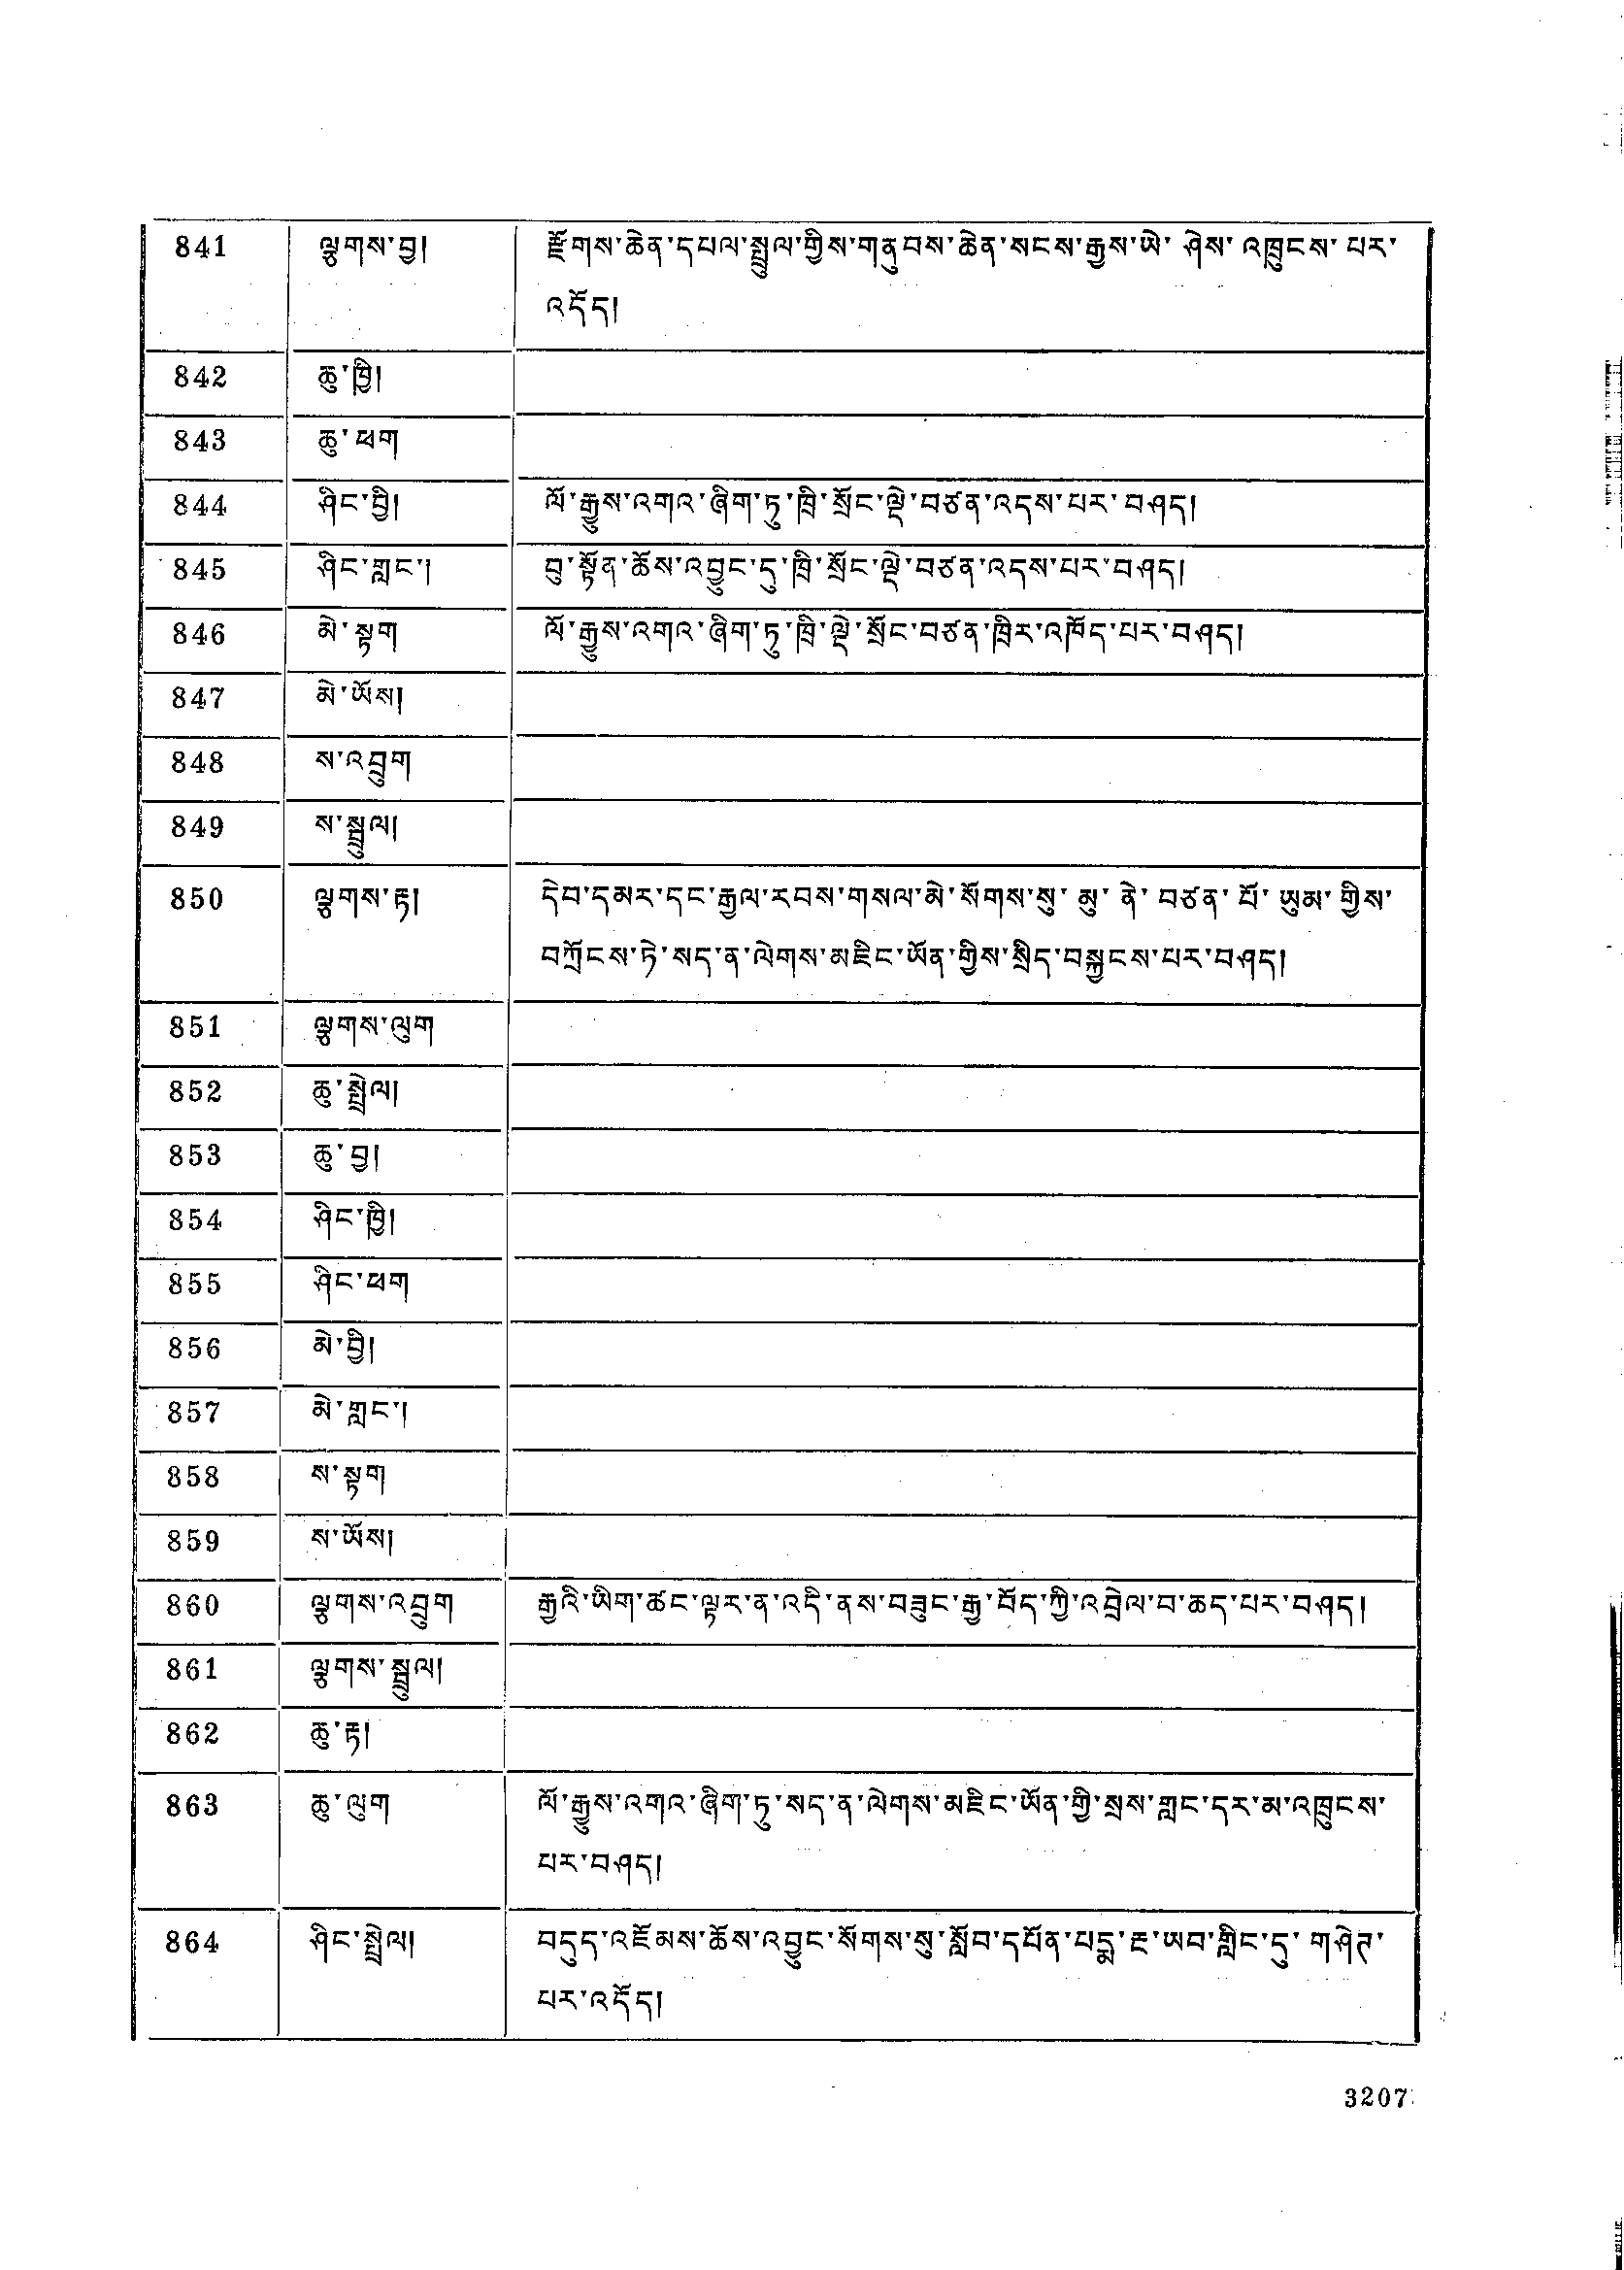 841 ལྕགས་བྱ། རྫོགས་ཆེན་དཔལ་སྤྲུལ་གྱིས་གནུབས་ཆེན་སངས་རྒྱས་ཡེ་ ཤེས་ འཁྲུངས་ པར་
འདོད།
842 ཆུ་ཁྱི།
843 ཆུ་ཕག
844 ཤིང་བྱི། ལོ་རྒྱུས་འགའ་ཞིག་ཏུ་ཁྲི་སྲོང་ལྡེ་བཙན་འདས་པར་བཤད།
845 ཤིང་གླང་། བུ་སྟོན་ཆོས་འབྱུང་དུ་ཁྲི་སྲོང་ལྡེ་བཙན་འདས་པར་བཤད།
846 མེ་སྟག ལོ་རྒྱུས་འགའ་ཞིག་ཏུ་ཁྲི་ལྡེ་སྲོང་བཙན་ཁྲིར་འཁོད་པར་བཤད།
847 མེ་ཡོས།
848 ས་འབྲུག
849 ས་སྦྲུལ།
850 ལྕགས་རྟ། དེབ་དམར་དང་རྒྱལ་རབས་གསལ་མེ་སོགས་སུ་ མུ་ ནེ་ བཙན་ པོ་ ཡུམ་ གྱིས་
བཀྲོངས་ཏེ་སད་ན་ལེགས་མཇིང་ཡོན་གྱིས་སྲིད་བསྐྱངས་པར་བཤད།
851 ལྕགས་ལུག
852 ཆུ་སྤྲེལ།
853 ཆུ་བྱ།
854 ཤིང་ཁྱི།
855 ཤིང་ཕག
856 མེ་བྱི།
857 མེ་གླང་།
858 ས་སྟག
859 ས་ཡོས།
860 ལྕགས་འབྲུག རྒྱའི་ཡིག་ཚང་ལྟར་ན་འདི་ནས་བཟུང་རྒྱ་བོད་ཀྱི་འབྲེལ་བ་ཆད་པར་བཤད།
861 ལྕགས་སྦྲུལ།
862 ཆུ་རྟ།
863 ཆུ་ལུག ལོ་རྒྱུས་འགའ་ཞིག་ཏུ་སད་ན་ལེགས་མཇིང་ཡོན་གྱི་སྲས་གླང་དར་མ་འཁྲུངས་
པར་བཤད།
864 ཤིང་སྤྲེལ། བདུད་འཇོམས་ཆོས་འབྱུང་སོགས་སུ་སློབ་དཔོན་པདྨ་རྔ་ཡབ་གླིང་དུ་ གཤེར་
པར་འདོད།
3207